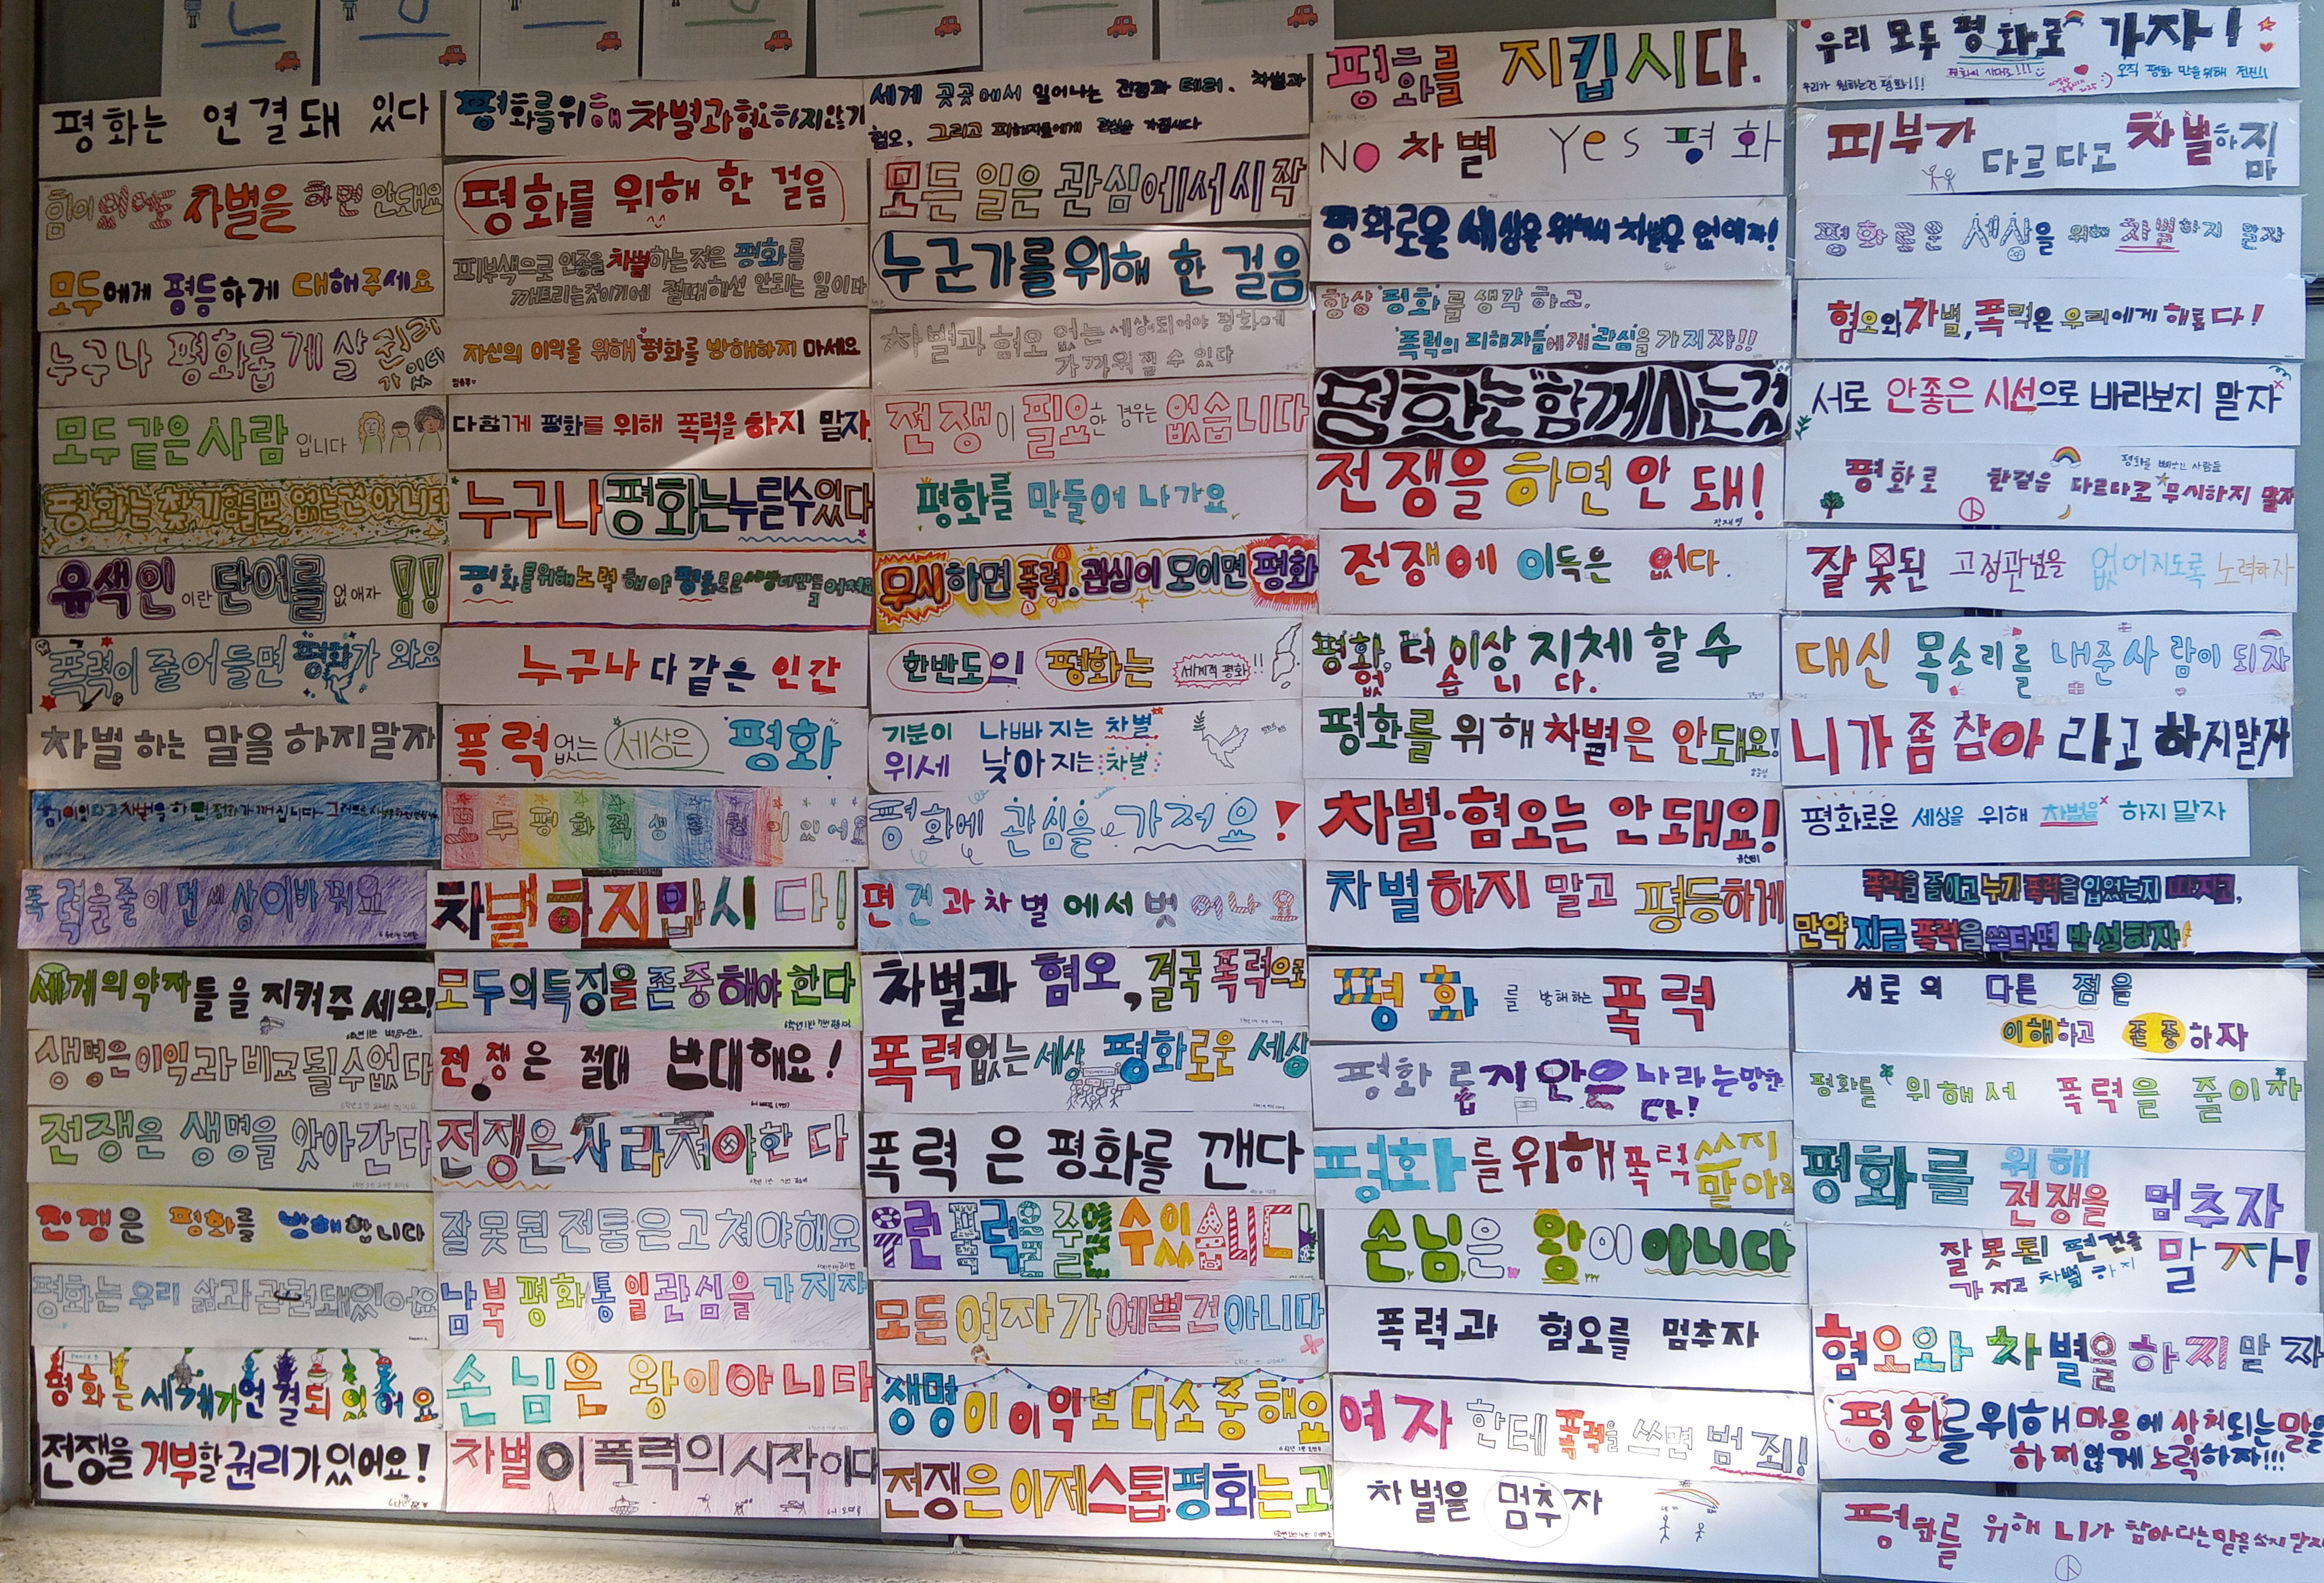 평화는 연결돼 있다
힘이 있어도 차별을 하면 안돼요
모두에게 평등하게 대해주세요
누구나 평화롭게 살 권리가 있다
모두 같은 사람 입니다
평화는 찾기 힘들뿐, 없는건 아니다
유색인 이란 단어를 없애자 !!
폭력이 줄어들면 평화가 와요
차별 하는 말을 하지말자
폭력을 줄이면 세상이 바뀌요
세계의 약자들을 지켜주세요!
생명은 이익과 비교될 수 없다
전쟁은 생명을 앗아간다
전쟁은 평화를 방해합니다
평화는 우리 삶과 관련돼있어요
평화는 세계가 연결되 있어요
전쟁을 거부할 권리가 있어요!
평화를 위해 차별과 혐오하지않기
평화를 위해 한 걸음
피부색으로 인종을 차별하는 것은 평화를
깨트리는것이기에 절때해선 안되는 일이다
자신의 이익을 위해 평화를 방해하지 마세요
다함께 평화를 위해 폭력을 하지 말자.
누구나 평화는 누릴수있다
평화를 위해 노력 해야 평화로운 세상이 만들어져요
누구나 다 같은 인간
폭력 없는 세상은 평화
모두 평화적 생
이 있어요
차별하지맙시다!
모두의 특징을 존중해야 한다
전쟁은 절대 반대해요!
전쟁은 사라져야한다
잘못된 전통은 고쳐야해요
남북 평화통일 관심을 가지자
손님은 왕이 아니다
차별이 폭력의 시작이다
세계 곳곳에서 일어나는 전쟁과 테러. 차별과
혐오, 그리고 피해자들에게 관심을 가집시다
모든 일은 관심에서 시작
누군가를 위해 한 걸음
차별과 혐오 없는 세상되어야 평화에
가까워 질 수 있다
전쟁이 필요한 경우는 없습니다
평화를 만들어 나가요
무시하면 폭력, 관심이 모이면 평화
한반도의 평화는 세계적 평화!!
기분이 나빠 지는 차별
위세 낮아 지는 차별
평화에 관심을 가져요!
편견과 차별에서 벗어나요
차별과 혐오, 결국 폭력으로
폭력없는 세상 평화로운 세상
폭력은 평화를 깬다
우린 폭력을 주일 수 있습니다!
모든 여자가 예쁜건 아니다
생명이 이익보다 소중해요
전쟁은 이제 스톱! 평화는 고
평화를 지킵시다.
NO 차별 Yes 평화
평화로운 세상을 위해서 차별을 없애자!
항상 '평화'를 생각 하고,
'폭력의 피해자들'에게 '관심'을 가지자!!
평화는 "함께" 사는것
전쟁을 하면 안 돼!
전쟁에 이득은 없다.
평화, 더 이상 지체 할 수
없습니다.
평화를 위해 차별은 안돼요!
차별·혐오는 안 돼요!
차별하지 말고 평등하게
평화를 방해하는 폭력
평화롭지 않은 나라는 망한다!
평화를 위해 폭력 쓰지
말아요
손님은 왕이 아니다
폭력과 혐오를 멈추자
여자한테 폭력을 쓰면 범죄!
차별을 멈추자
우리 모두 평화로 가자!
우리가 원하는건 평화!!!
오직 평화 만을 위해 전진!!
피부가 다르다고 차별하지마
평화로운 세상을 위해 차별하지 말자
혐오와 차별, 폭력은 우리에게 해롭다!
서로 안좋은 시선으로 바라보지 말자
평화로 한걸음 다르다고 무시하지 말자
잘못된 고정관념을 없어지도록 노력하자
대신 목소리를 내준 사람이 되자
니가 좀 참아 라고 하지말자
평화로운 세상을 위해 차별을 하지 말자
폭력을 줄이고 누가 폭력을 입었는지 따지고,
만약 지금 폭력을 쓴다면 반성하자!
서로의 다른 점을
이해하고 존중하자
평화를 위해서 폭력을 줄이자
평화를 위해
전쟁을 멈추자
잘못된 편견을
가지고 차별하지 말자!
혐오와 차별을 하지말자
평화를 위해 마음에 상처되는 말을
하지않게 노력하자!!!
평화를 위해 니가 참아라는 말을 쓰지 말자